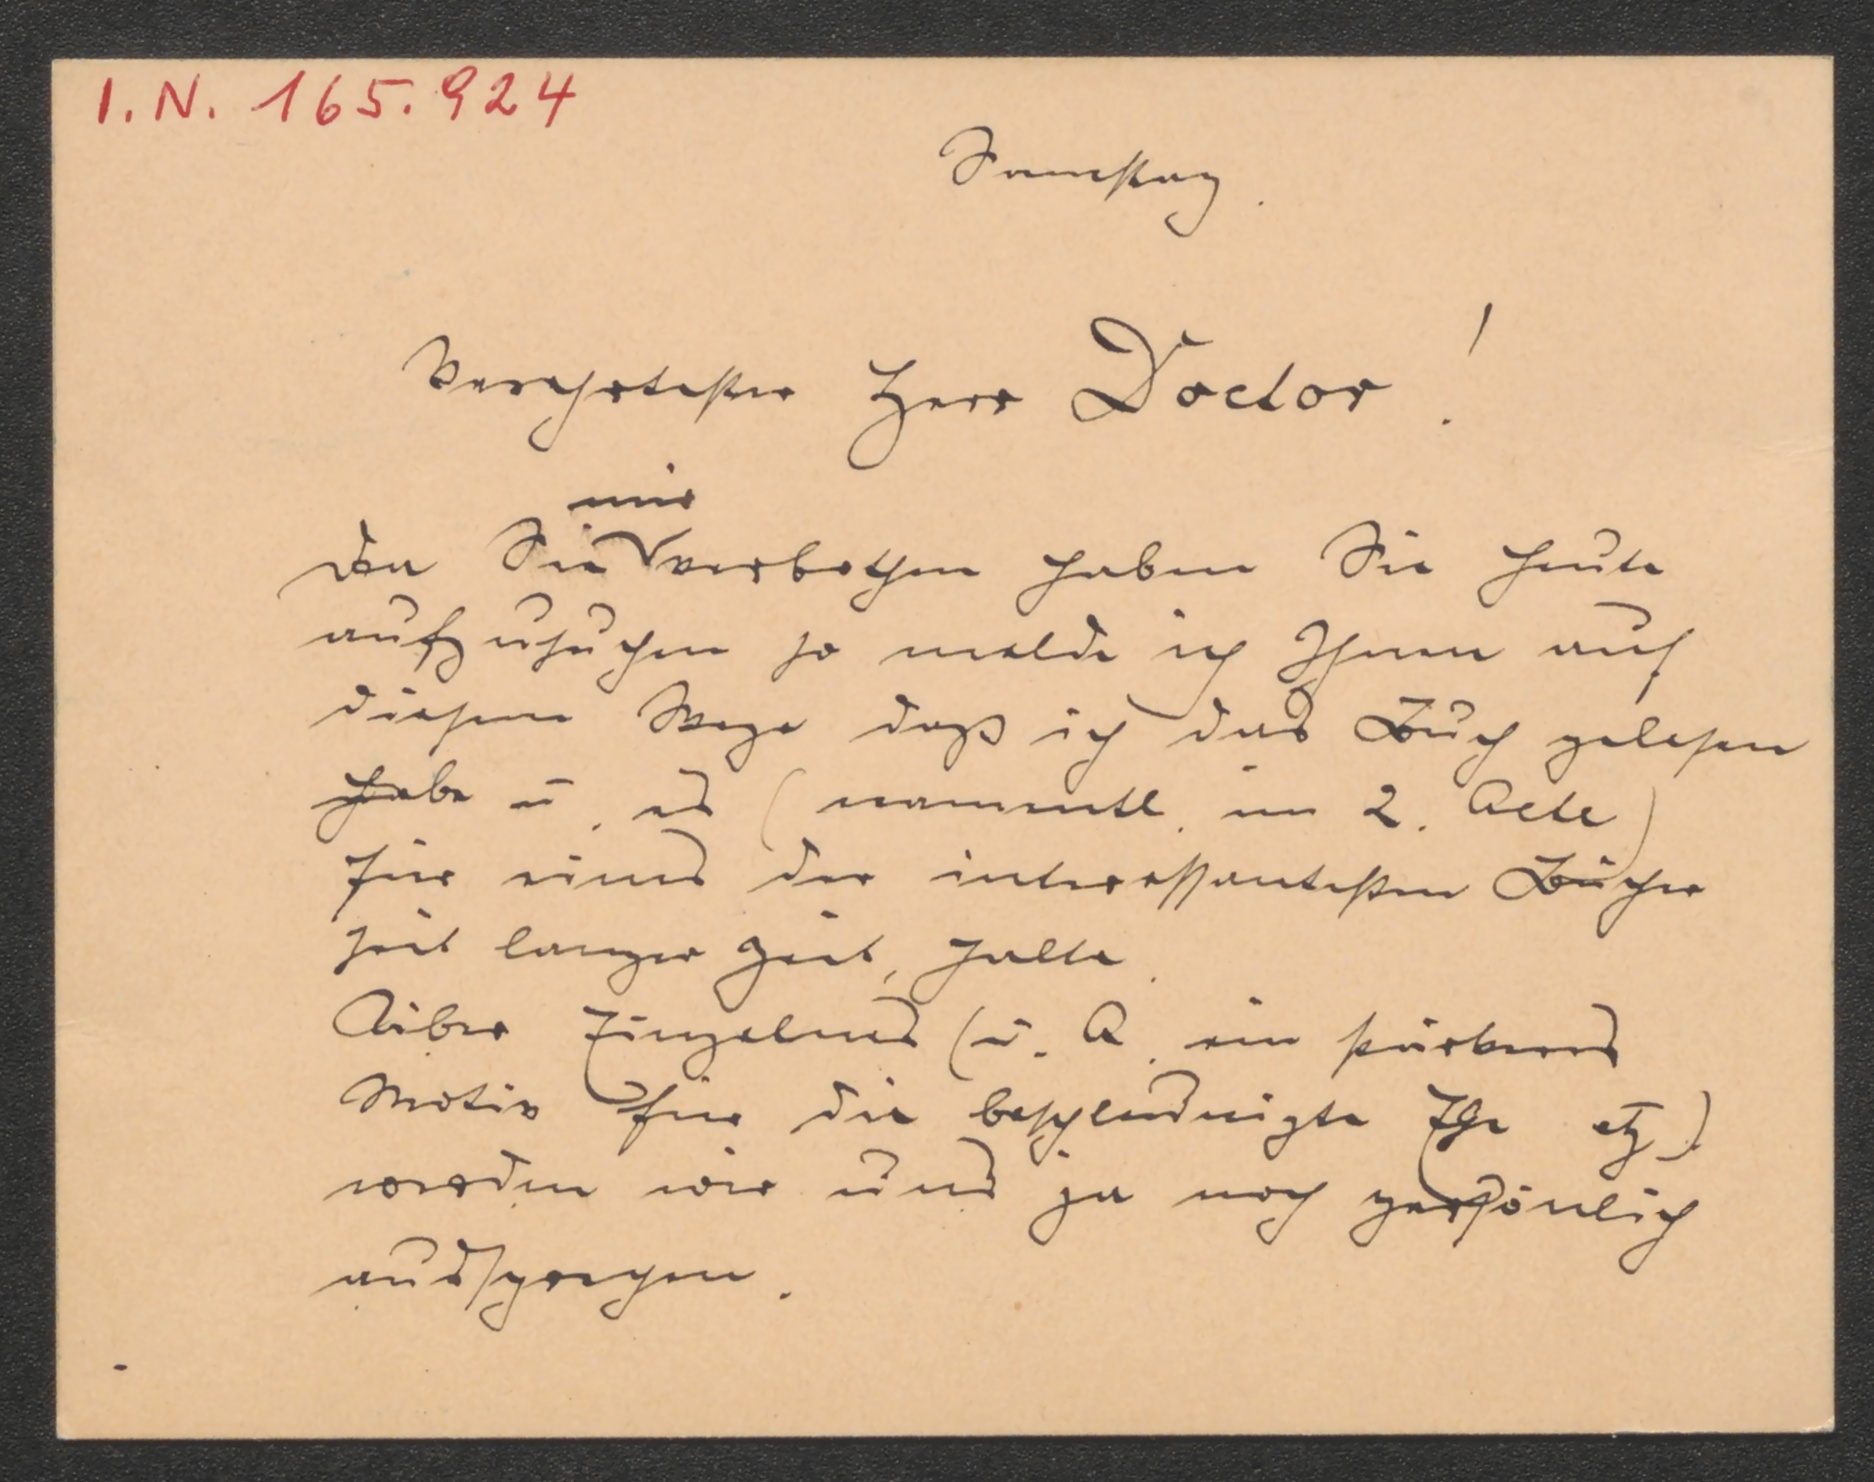 I.N. 165.924
Samstag.
Verehrtester Herr Doctor!
mir
Da Sie verbothen haben Sie heute
aufzusuchen so melde ich Ihnen auf
diesem Wege daß ich das Buch gelesen
habe u. es (namentl. im 2. Acte)
für eines der interessantesten Bücher
seit langer Zeit, halte.
Über Einzelnes (u. A. ein stärkeres
Motiv für die beschleunigte Ehe etz)
werden wir uns ja noch persönlich
aussprechen.